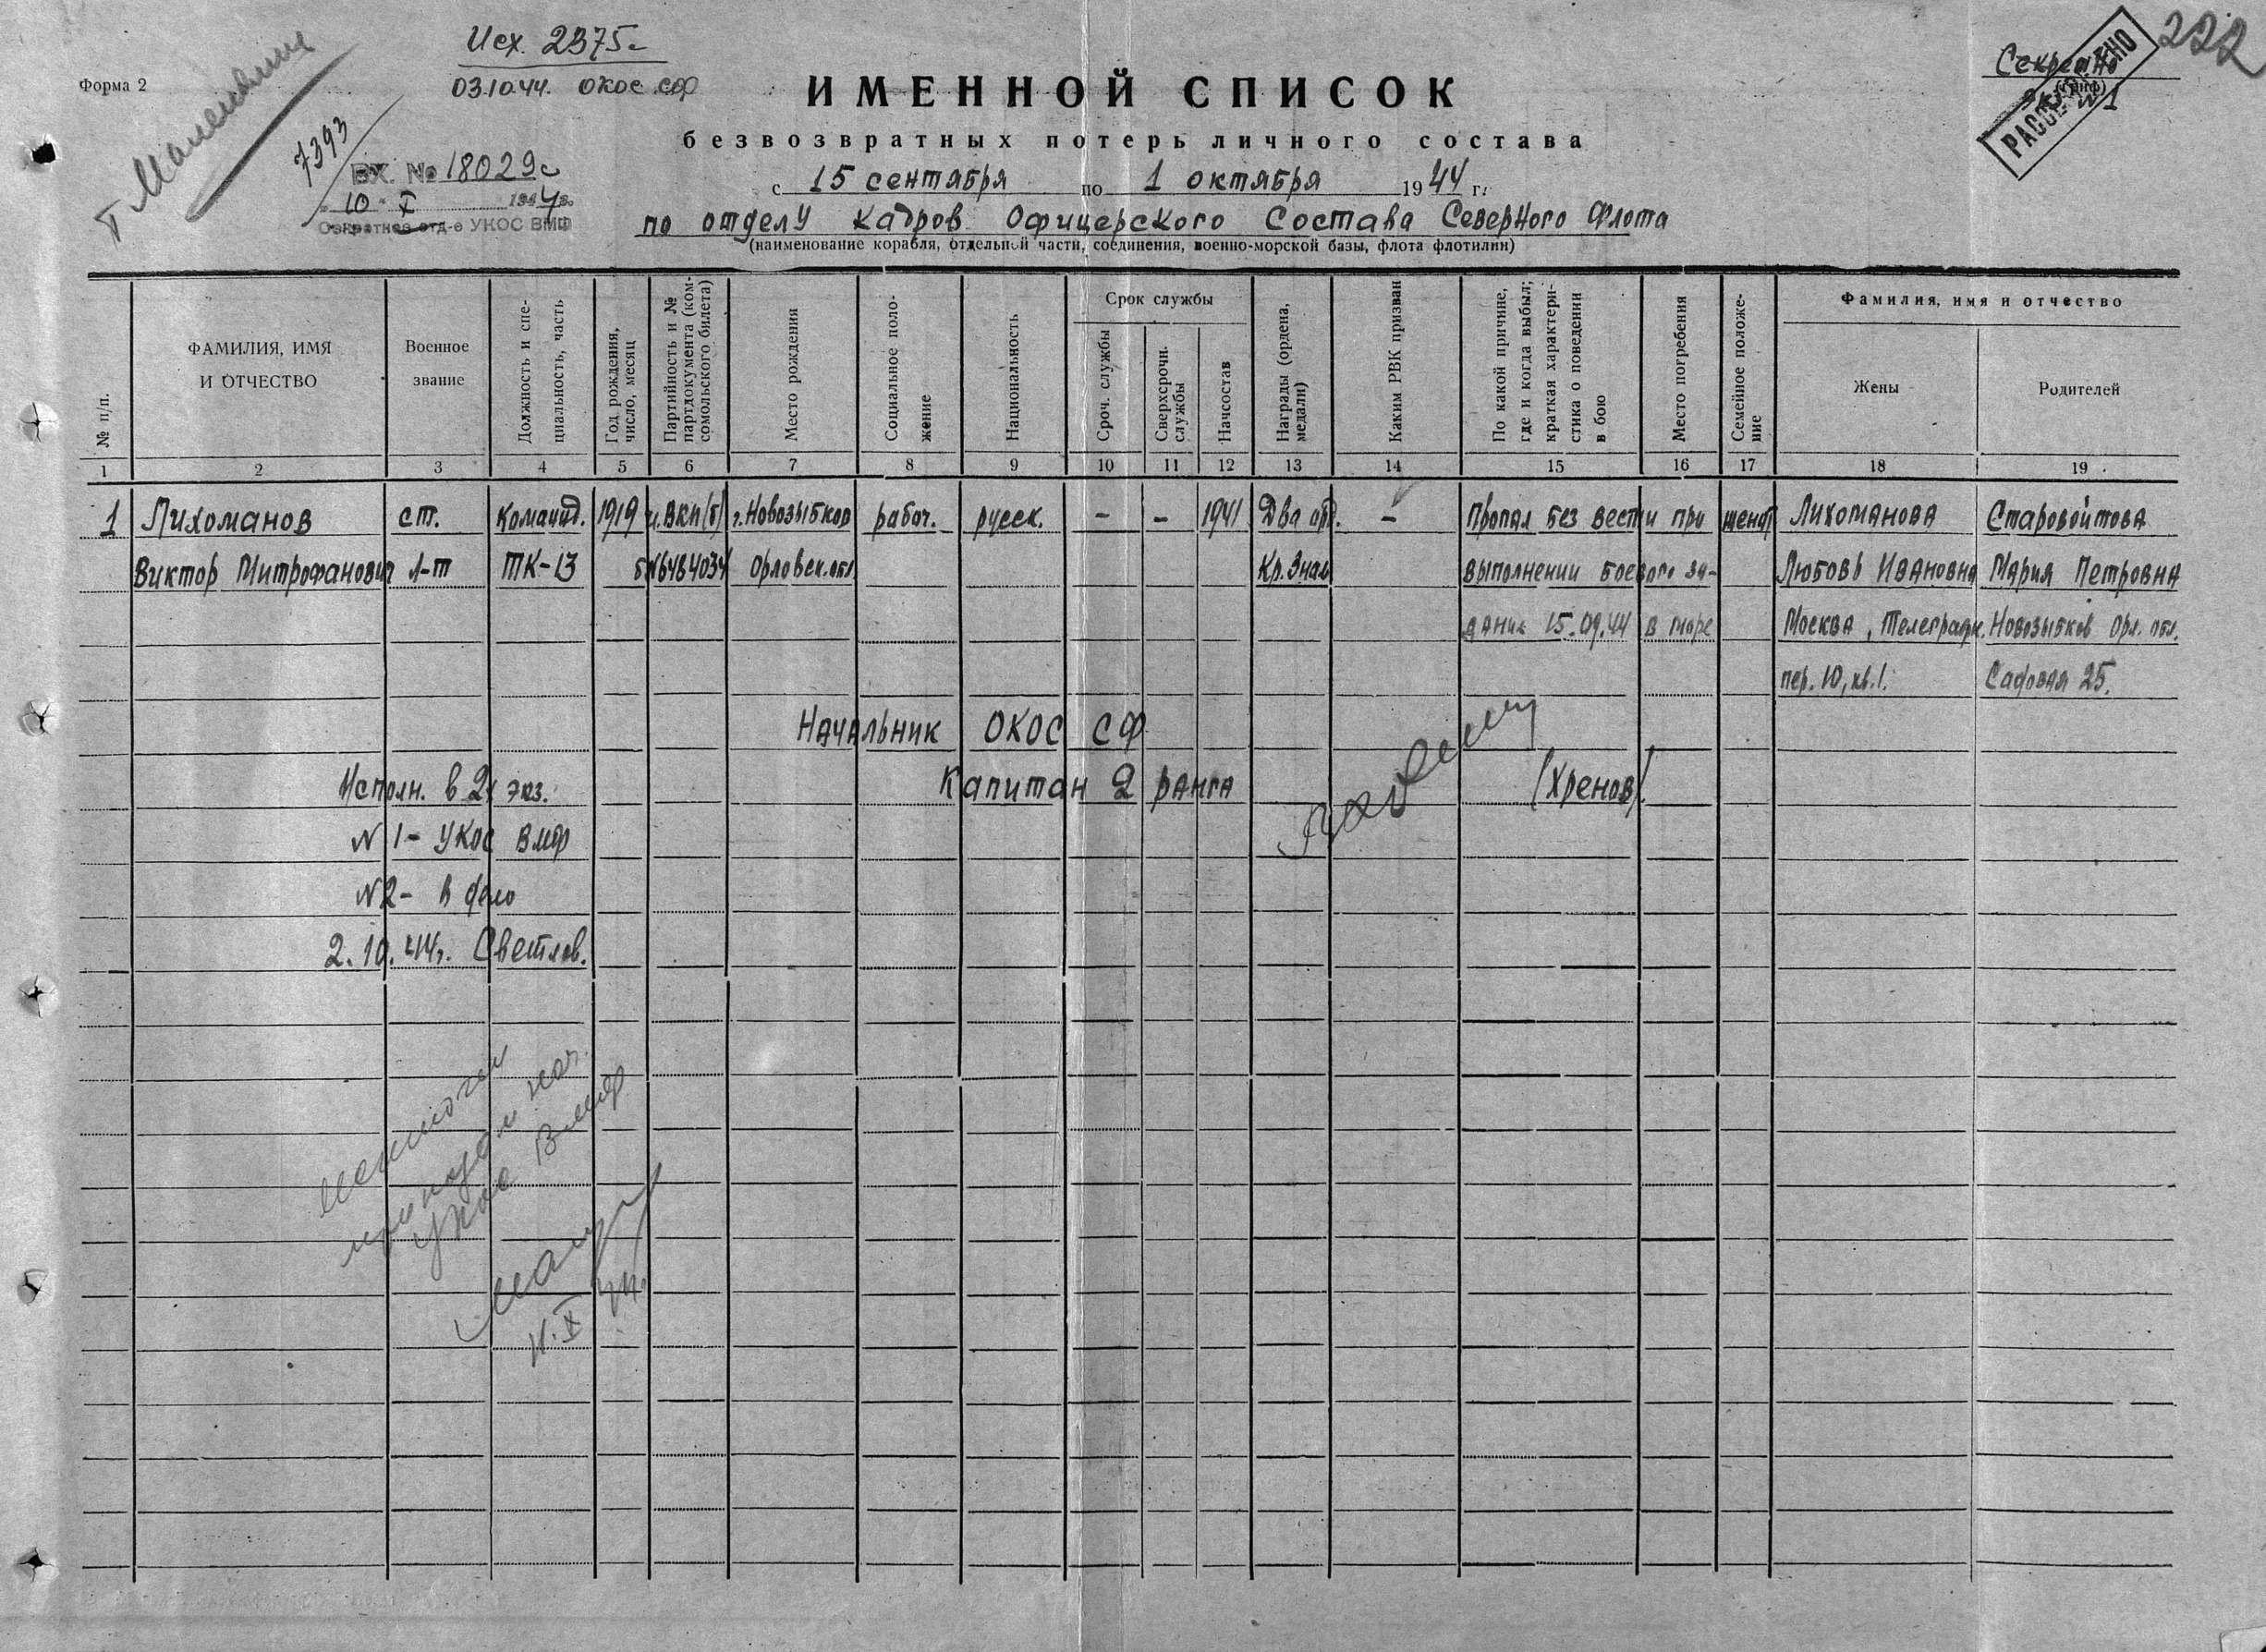 Форма 2
Исх. 2375с
03.10.44. ОКОС СФ
7393
Вх. № 18029с
"10" X 1944г.
Секретное отд-е УКОС ВМФ
Секретно
(гриф)
РАССЕКРЕЧЕНО
222
ИМЕННОЙ СПИСОК
безвозвратных потерь личного состава
с 15 сентября по 1 октября 1944 г.
по отделу кадров Офицерского Состава Северного Флота
(наименование корабля, отдельной части, соединения, военно-морской базы, флота флотилии)
№ п/п.
ФАМИЛИЯ, ИМЯ И ОТЧЕСТВО
Военное звание
Должность и специальность, часть
Год рождения, число, месяц
Партийность и № партдокумента (комсомольского билета)
Место рождения
Социальное положение
Национальность
Срок службы
Сроч. службы
Сверхсрочн. службы
Начсостав
Награды (ордена, медали)
Каким РВК призван
По какой причине, где и когда выбыл; краткая характеристика о поведении в бою
Место погребения
Семейное положение
Фамилия, имя и отчество
Жены
Родителей
1 2 3 4 5 6 7 8 9 10 11 12 13 14 15 16 17 18 19
1 Лихоманов ст. Команд. 1919 ч.ВКП(б) г.Новозыбков рабоч. русск. – – 1941 Два орд. – Пропал без вести при женат Лихоманова Старовойтова
Виктор Митрофанович л-т ТК-13 б№6484034 Орловск.обл. Кр.Знам выполнении боевого за- Любовь Ивановна Мария Петровна
дания 15.09.44 в море Москва, Телеграфн. Новозыбков Орл. обл.
пер. 10, кв.1. Садовая 25.
Начальник ОКОС СФ
Капитан 2 ранга (Хренов)
Исполн. в 2х экз.
№1- УКОС ВМФ
№2- в дело
2.10.44г. Светлов.
УКОС ВМФ
11.X 44.